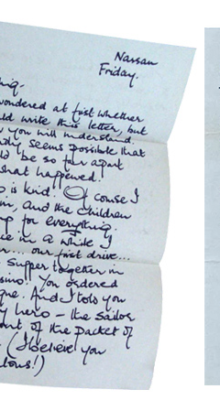 Nassau
Friday.
wondered at first whether
ld write this letter, but
you will understand.
dly seems possible that
ld be so far apart
what happened.
is kind. Of course I
m, and the children
up for everything.
ce in a while I
r... our first drive...
supper together in
sino! You ordered
gne. And I told you
y hero – the sailor
ont of the packet of
(I believe you